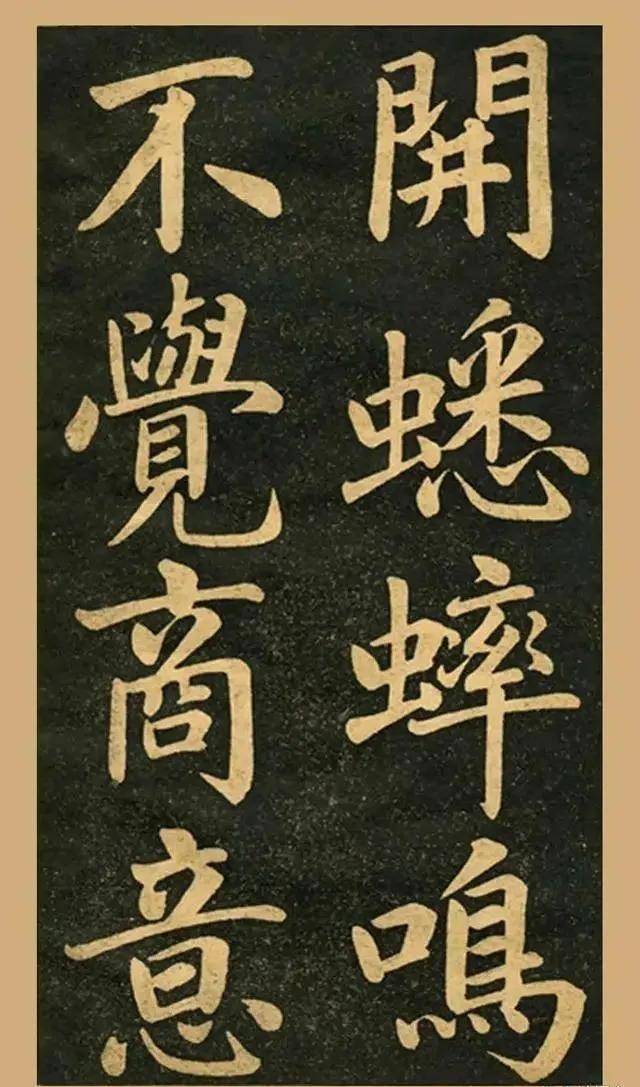 開蟋蟀鳴
不覺商意